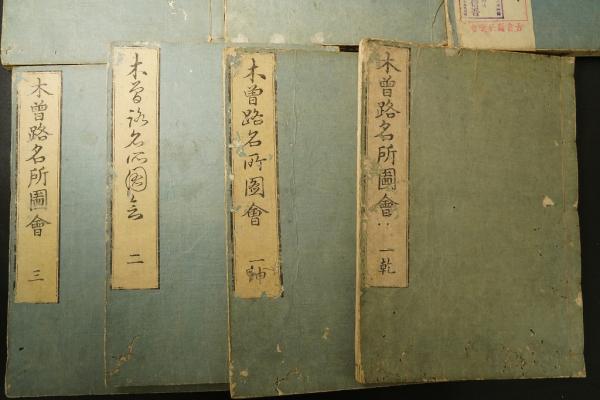 木曽路名所圖會 一乾
木曽路名所圖會 一坤
木曽路名所圖会 二
木曽路名所圖會 三